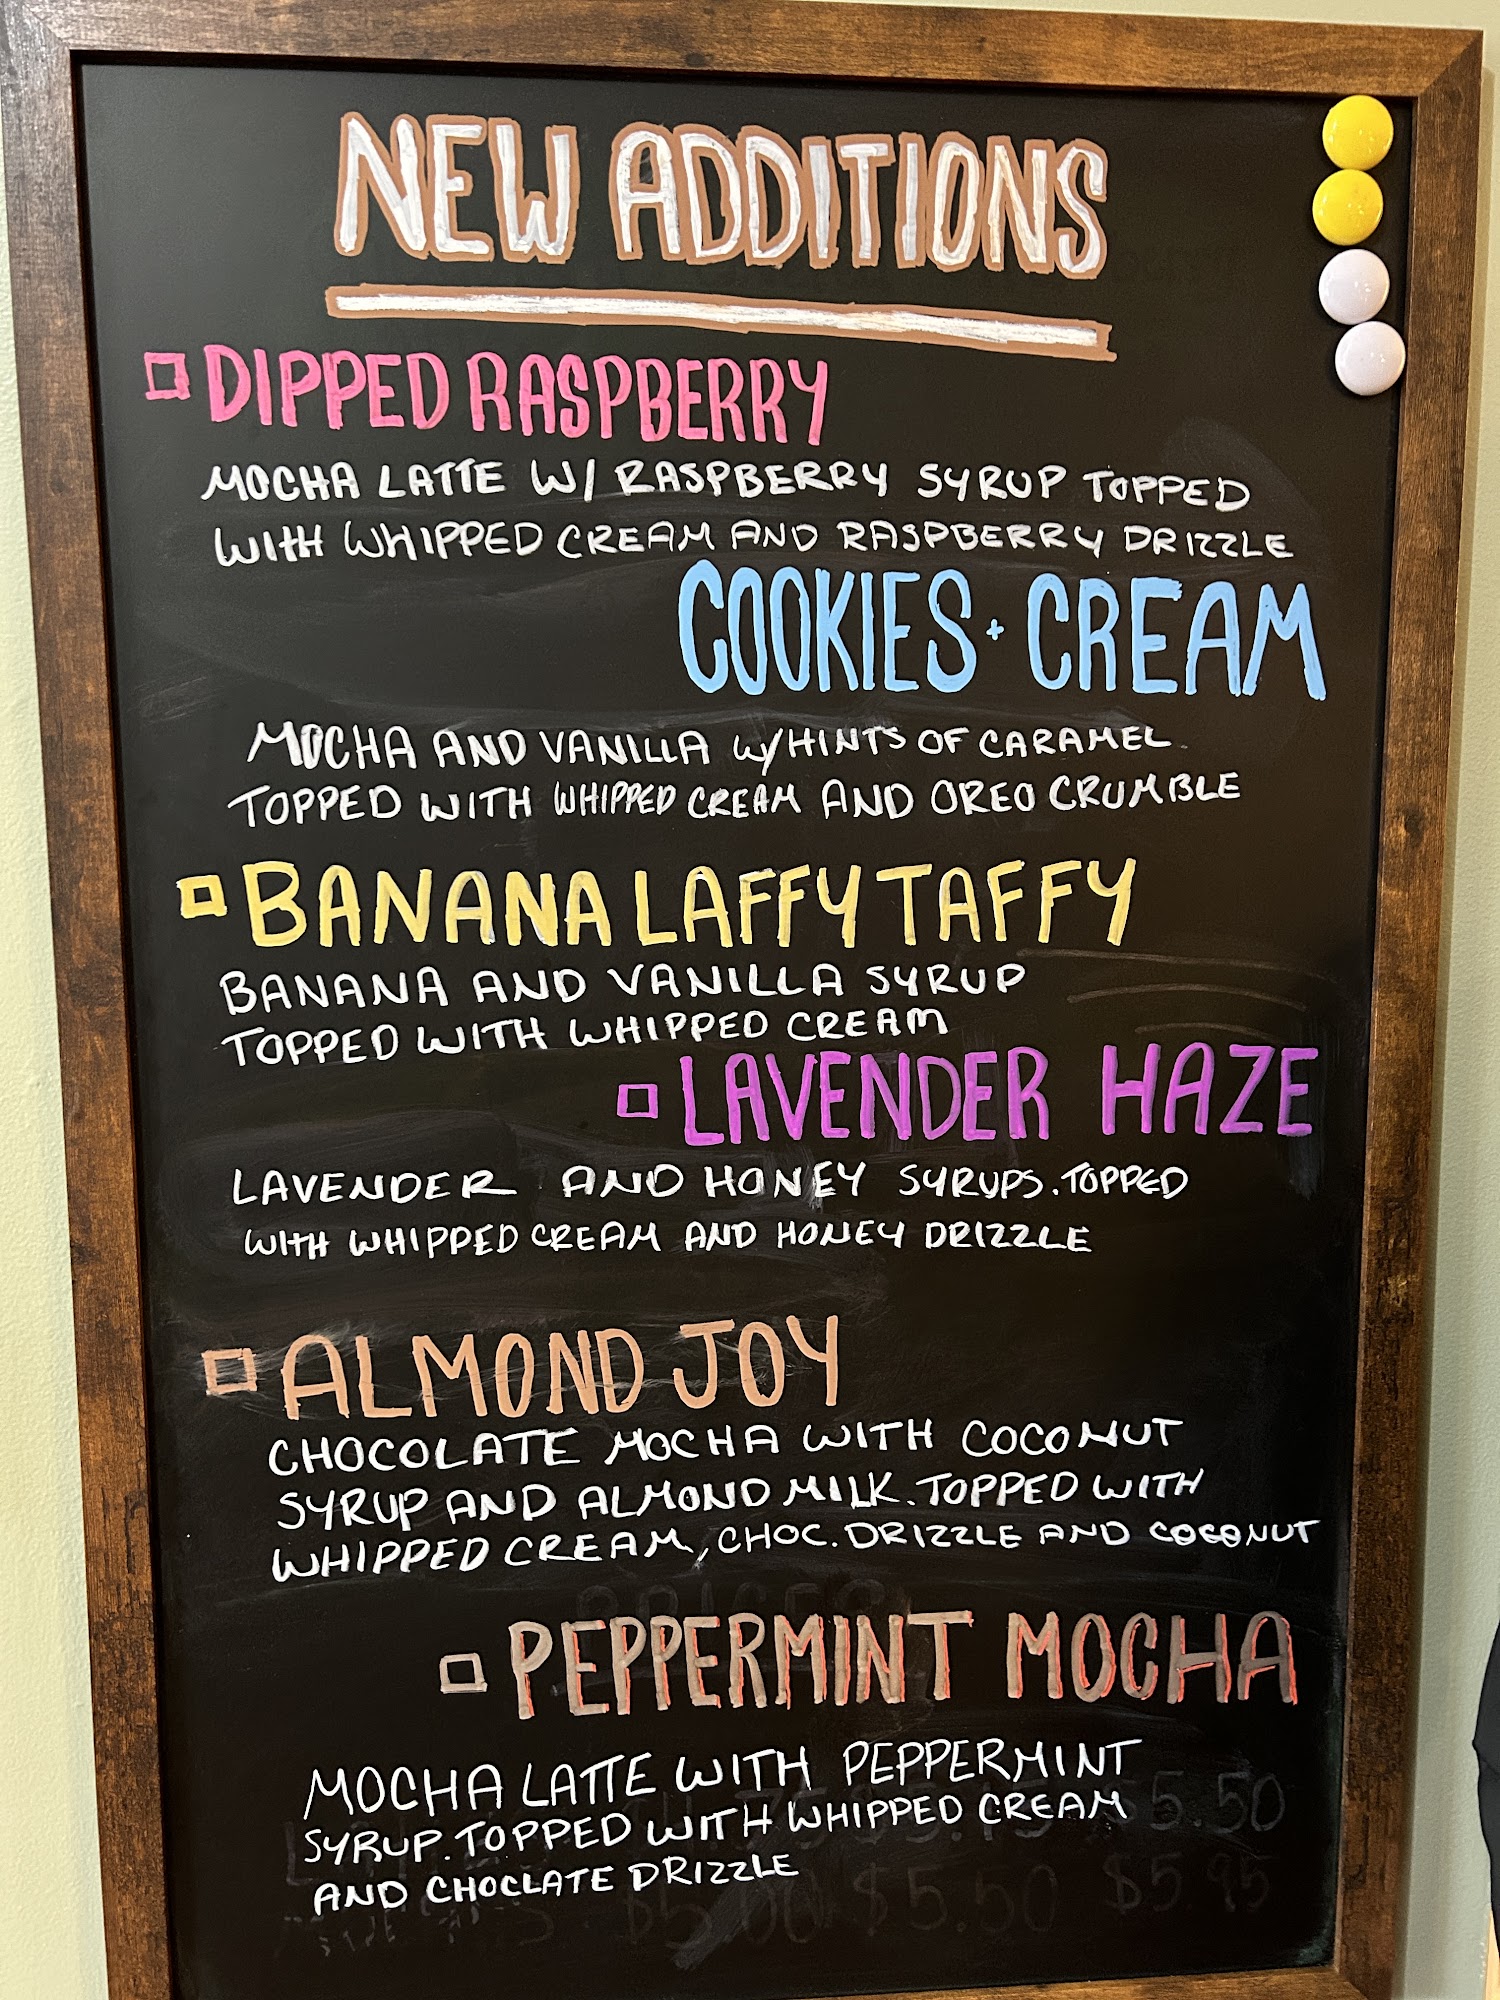 NEW ADDITIONS
DIPPED RASPBERRY
MOCHA LATTE W/ RASPBERRY SYRUP TOPPED
WITH WHIPPED CREAM AND RASPBERRY DRIZZLE
COOKIES + CREAM
MOCHA AND VANILLA W/HINTS OF CARAMEL
TOPPED WITH WHIPPED CREAM AND OREO CRUMBLE
BANANA LAFFY TAFFY
BANANA AND VANILLA SYRUP
TOPPED WITH WHIPPED CREAM
LAVENDER HAZE
LAVENDER AND HONEY SYRUPS. TOPPED
WITH WHIPPED CREAM AND HONEY DRIZZLE
ALMOND JOY
CHOCOLATE MOCHA WITH COCONUT
SYRUP AND ALMOND MILK. TOPPED WITH
WHIPPED CREAM, CHOC. DRIZZLE AND COCONUT
PRICES
PEPPERMINT MOCHA
MOCHA LATTE WITH PEPPERMINT
SYRUP. TOPPED WITH WHIPPED CREAM
AND CHOCLATE DRIZZLE
$5.50
$5.00 $5.50 $5.95